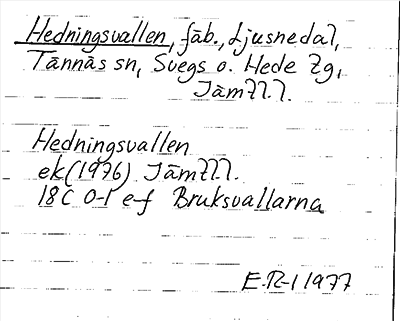 Hedningsvallen, fäb., Ljusnedal,
Tännäs sn, Svegs o. Hede tg,
Jämtl.
Hedningsvallen
ek (1976) Jämtl.
18C 0-1 e-f Bruksvallarna
E.R-l 1977